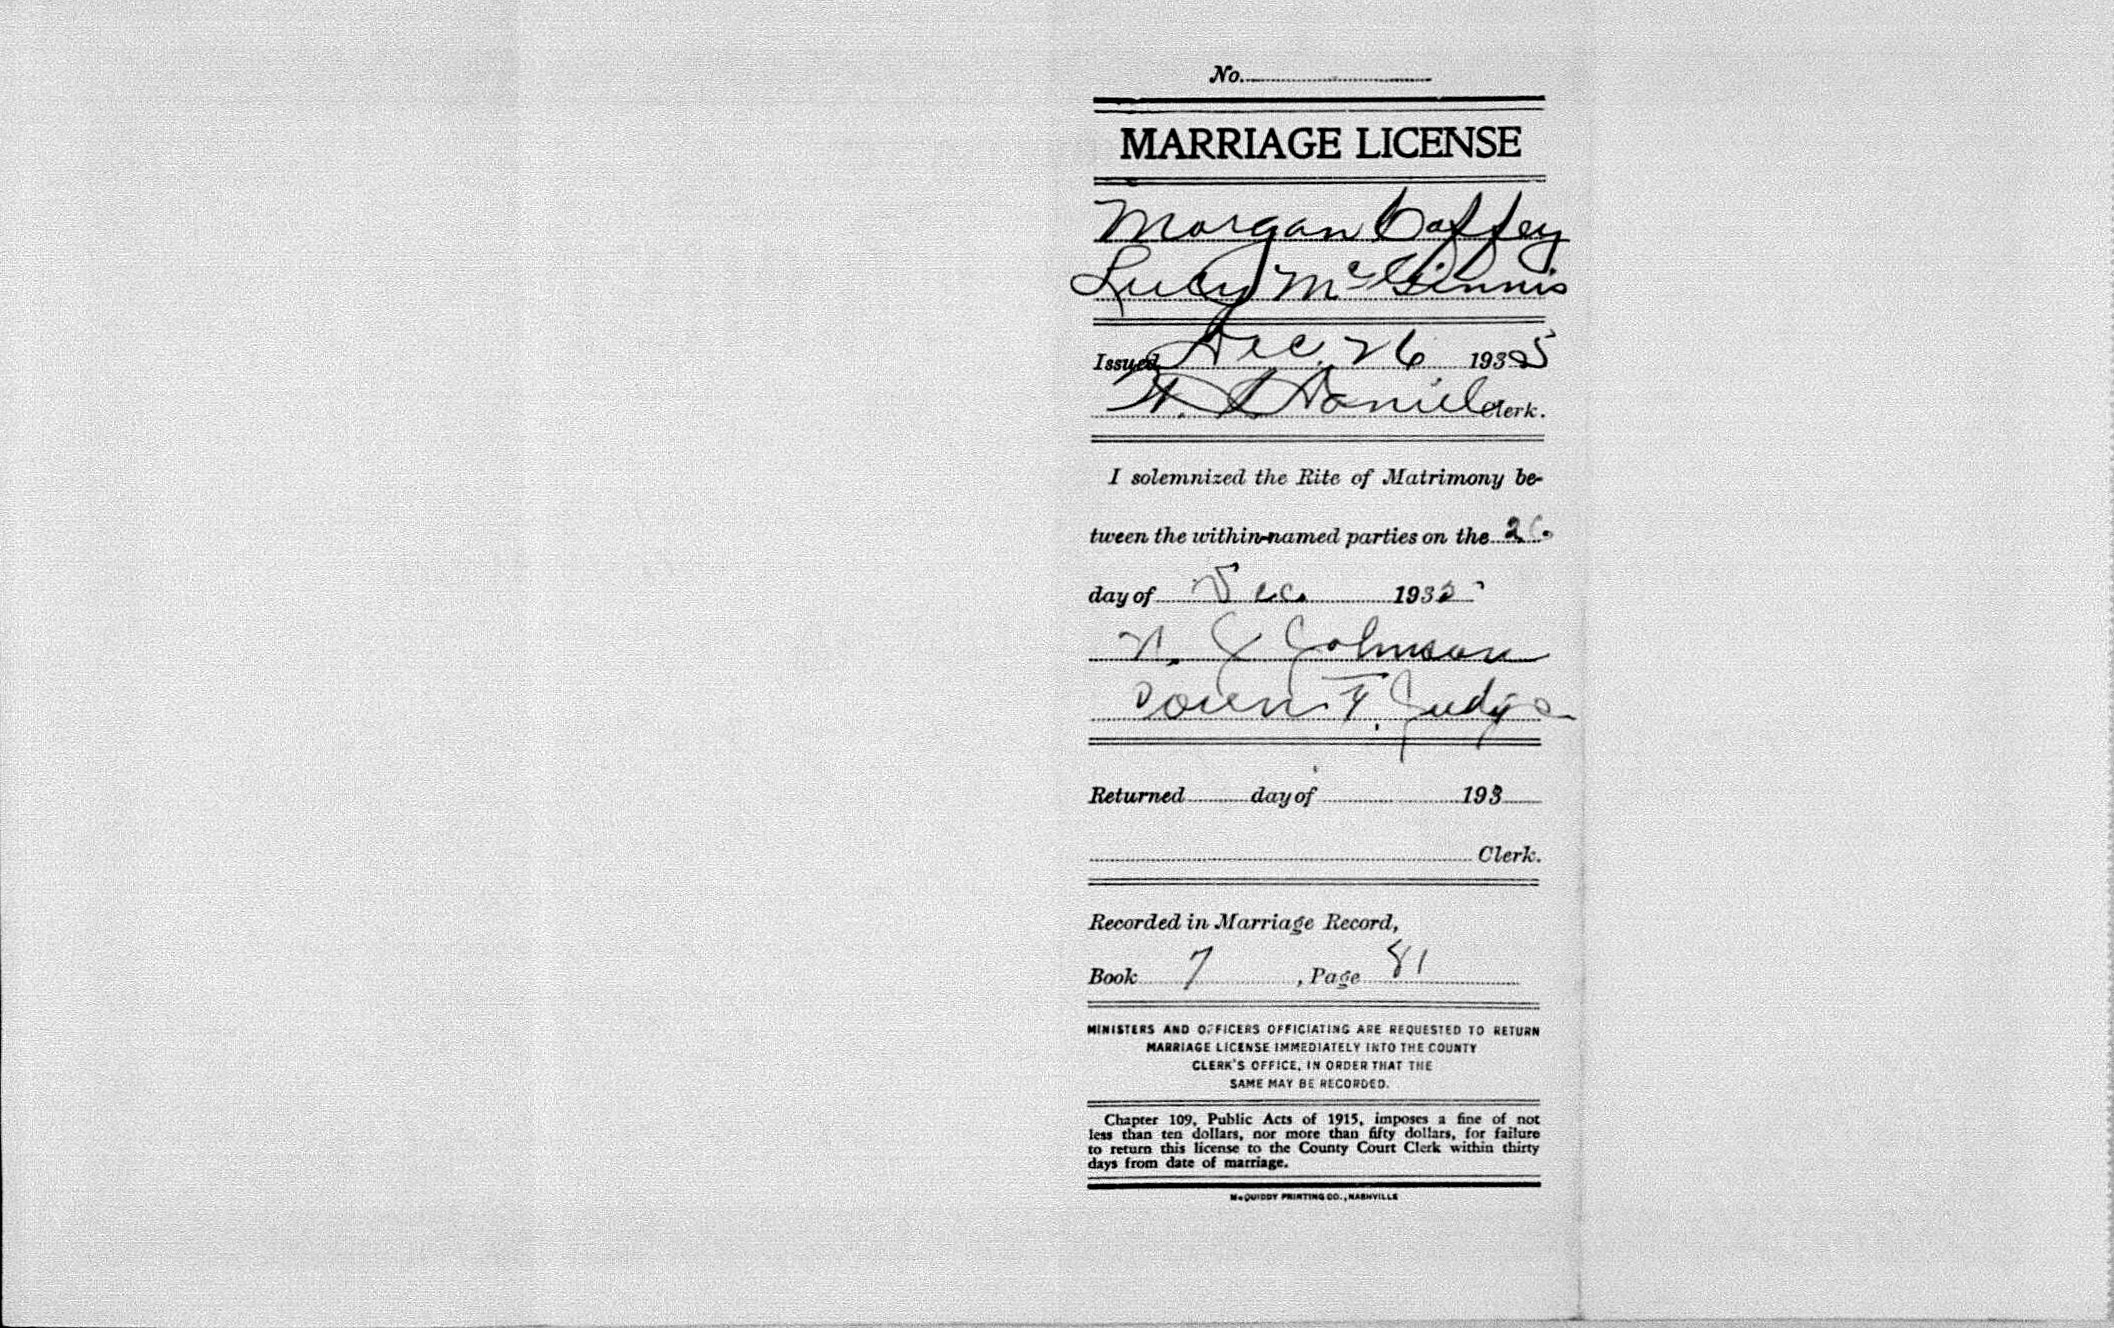 No.
MARRIAGE LICENSE
Morgan Coffey
Lucy McGinnis
Issued Dec. 26 1935
Daniel Clerk.
I solemnized the Rite of Matrimony be-
tween the within-named parties on the 26
day of Dec. 193
Johnson
Judge
Returned day of 193
Clerk.
Recorded in Marriage Record,
Book 7, Page 81
MINISTERS AND OFFICERS OFFICIATING ARE REQUESTED TO RETURN
MARRIAGE LICENSE IMMEDIATELY INTO THE COUNTY
CLERK'S OFFICE, IN ORDER THAT THE
SAME MAY BE RECORDED.
Chapter 109, Public Acts of 1915, imposes a fine of not
less than ten dollars, nor more than fifty dollars, for failure
to return this license to the County Court Clerk within thirty
days from date of marriage.
McQUIDDY PRINTING CO., NASHVILLE